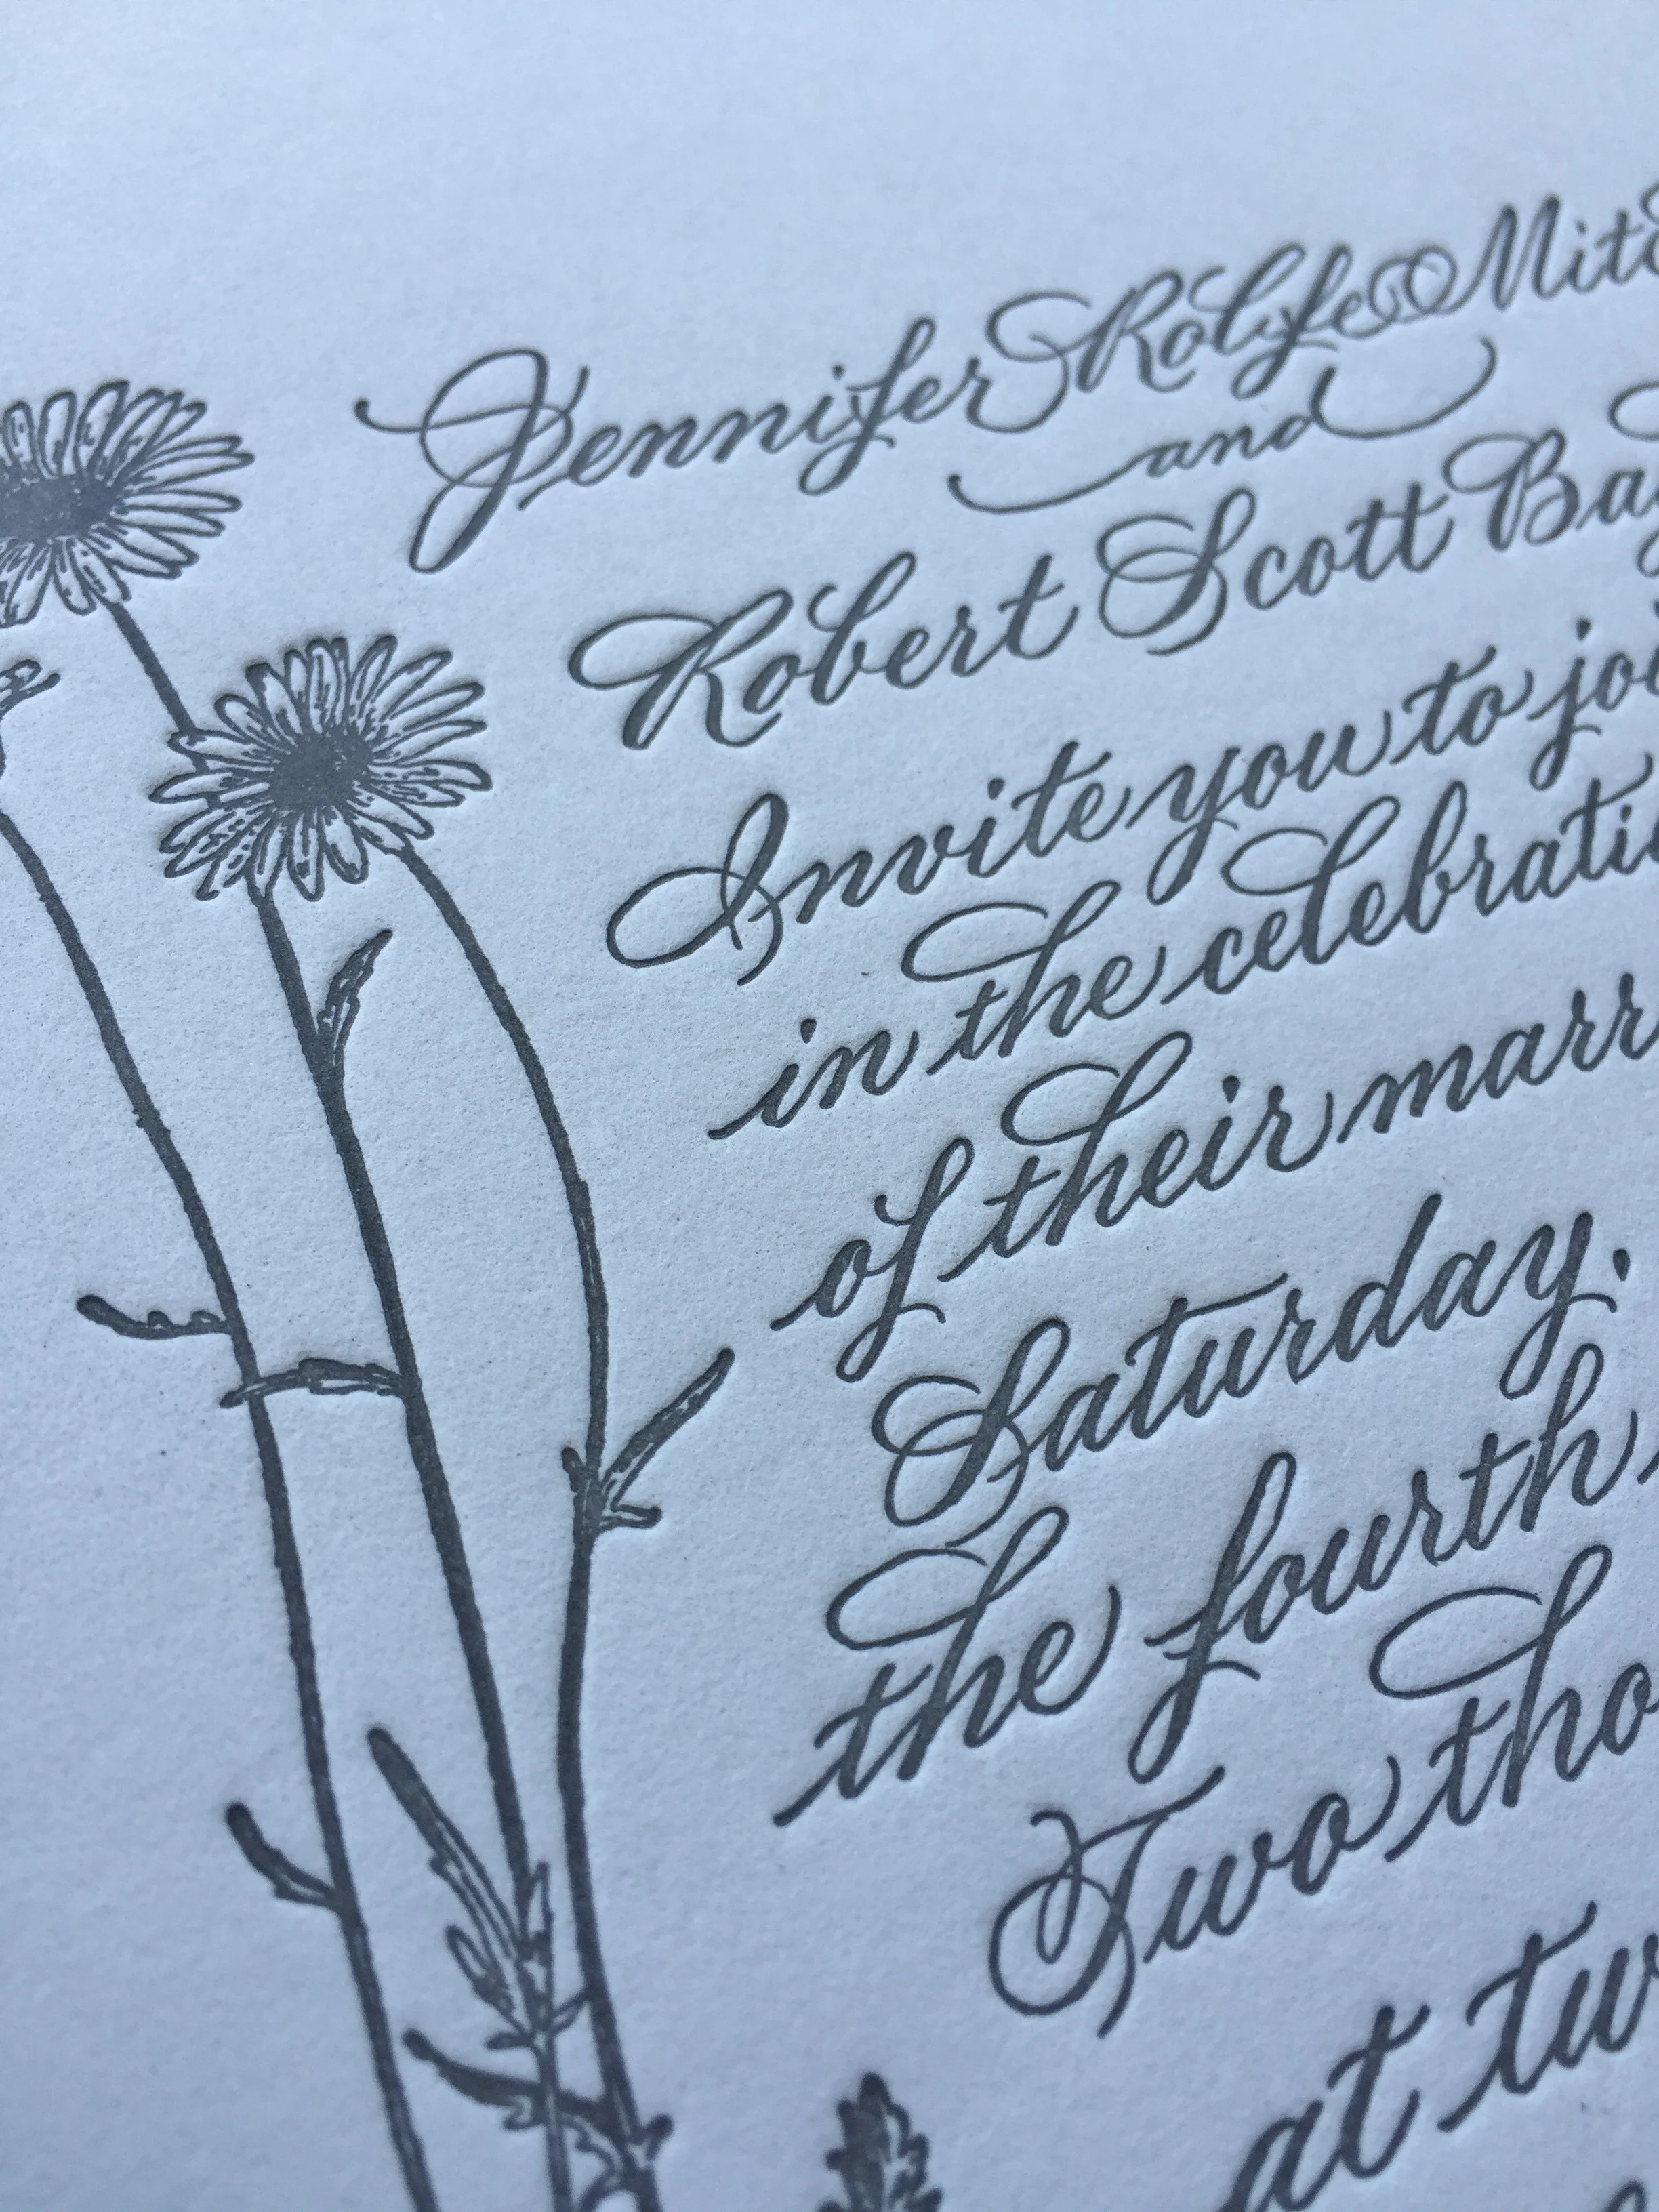 Jennifer Rolfe Mitc
and
Robert Scott Ba
Invite you to joi
in the celebrati
of their marr
Saturday,
the fourth
Two tho
at tw